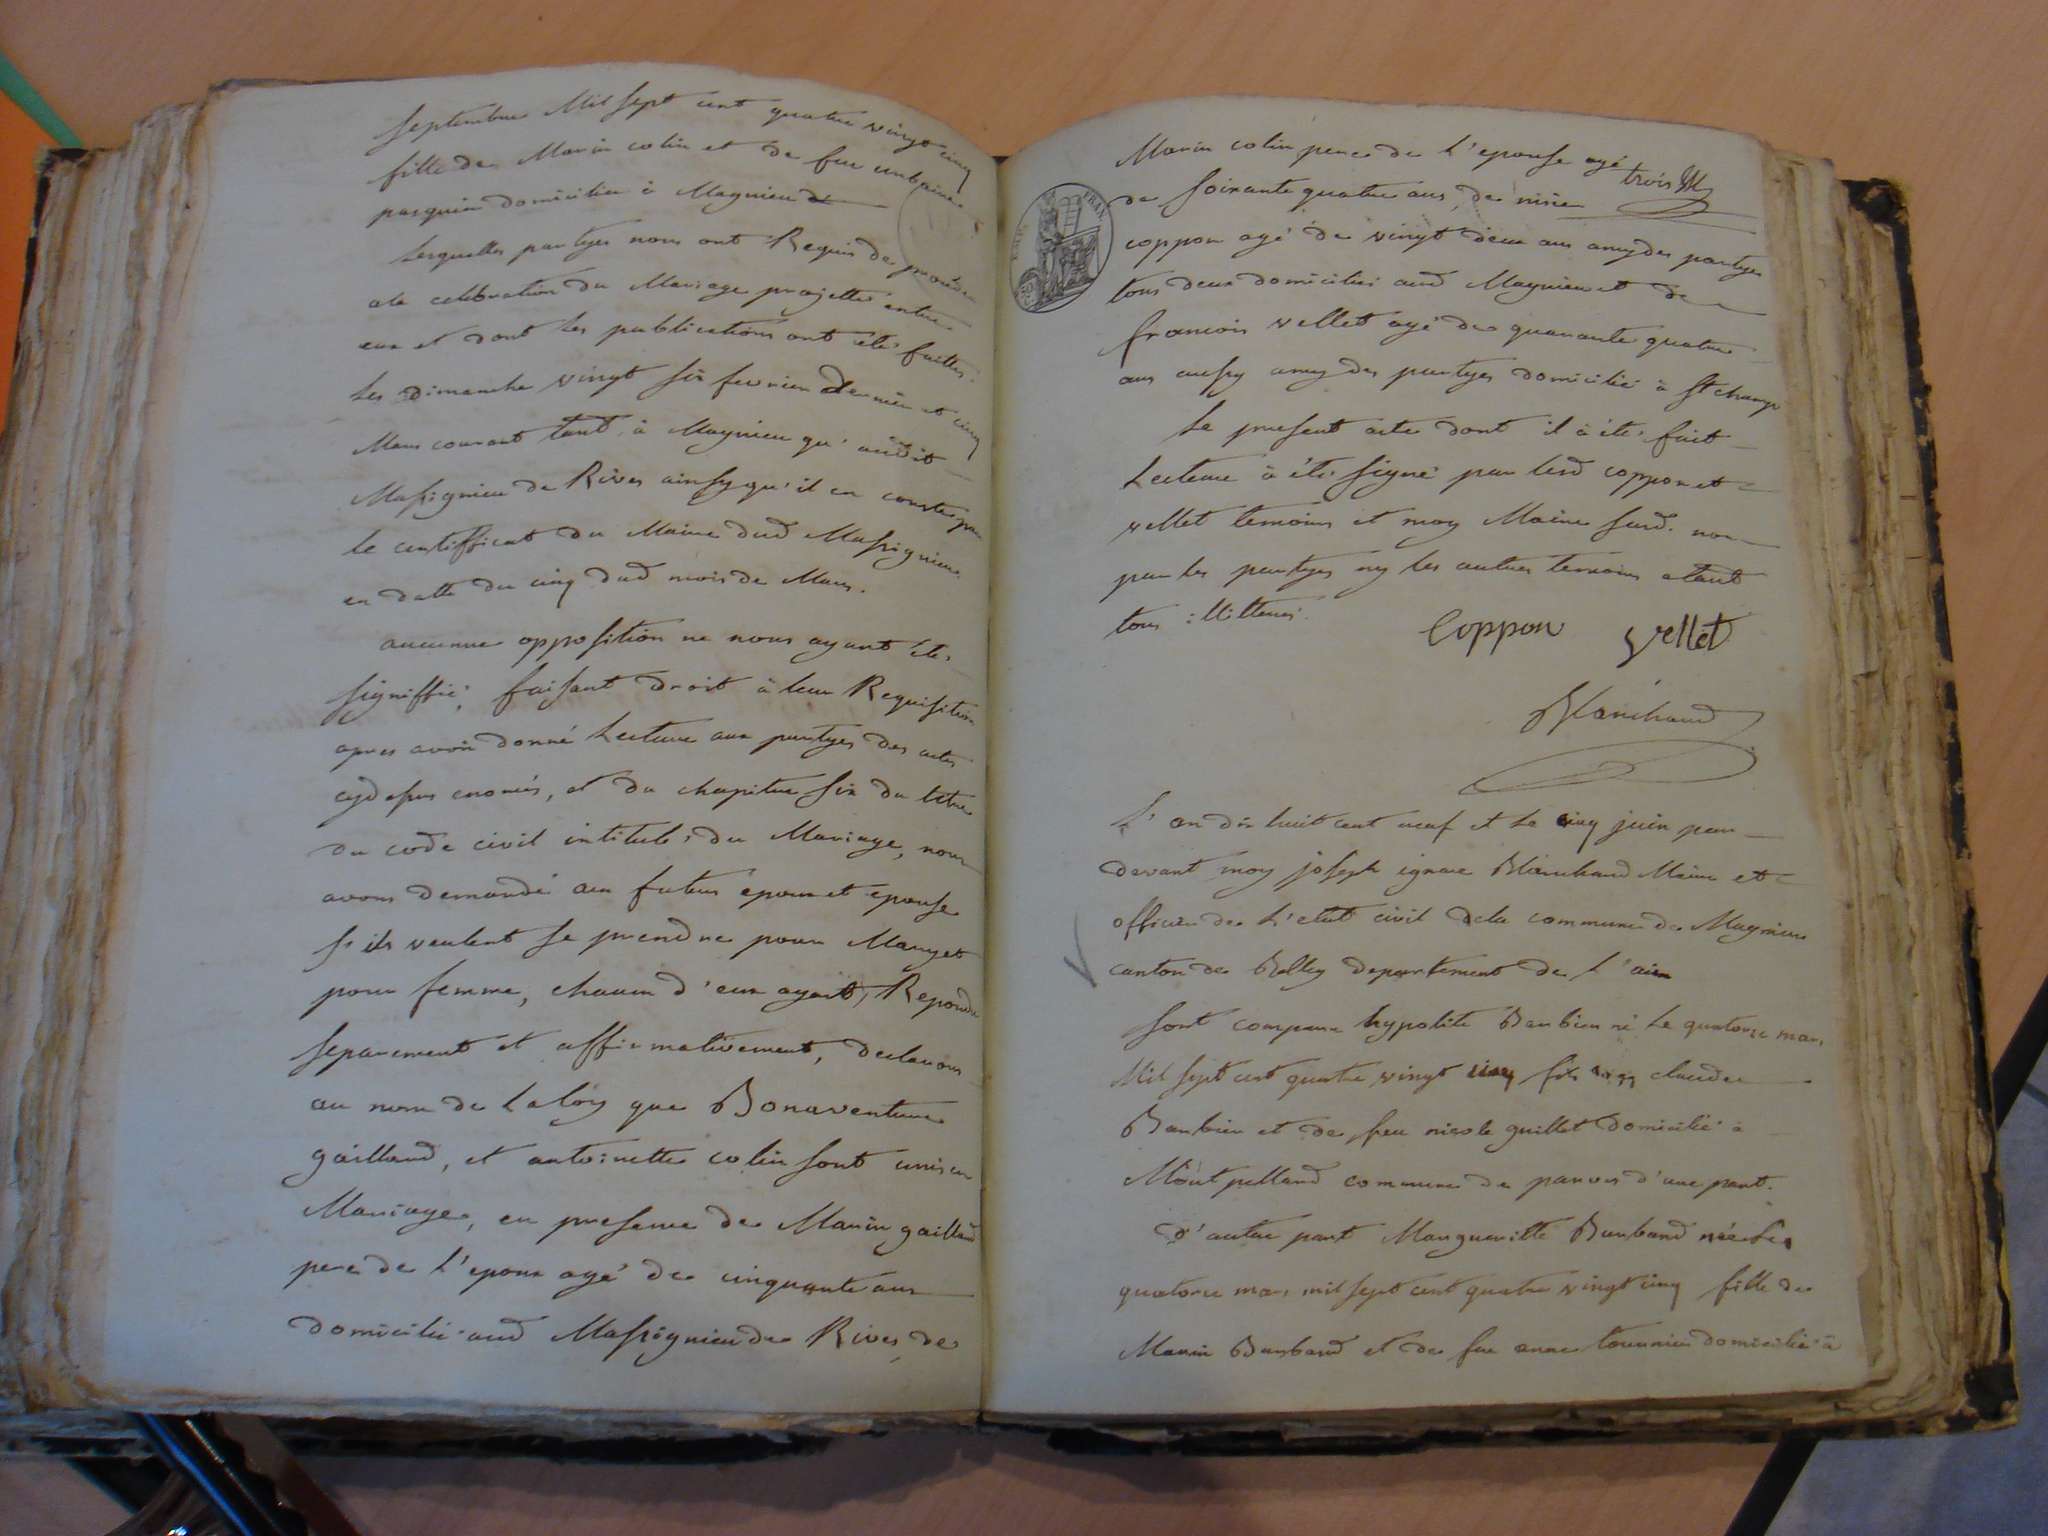 septembre Mil sept cent quatre vingt cinq
fille de Marin colin et de feu
pasquin domicilieé à Magnieu
Lesquelles partyes nous ont Requis de procéder
ala celebration du Mariage projetté entre
eux et dont les publications ont été faittes
les dimanche vingt six fevrier dernier et cinq
Mars courant tant à Magnieu qu'audit
Massignieu de Rives ainsy qu'il en conste par
le certifficat du Maire dud Massignieu
en datte du cinq dud mois de Mars.
aucunne opposition ne nous ayant été
signiffié, faisant droit à leur Requisition
apres avoir donné Lecture aux partyes des actes
cydessus enoncés, et du chapitre six du titre
du code civil intitulé du Mariage, nous
avons demandé au futur epoux et epouse
s'ils veulent se prendre pour Mary et
pour femme, chacun d'eux ayant, Repondu
separement et affirmativement, declarons
au nom de La loy que Bonaventure
gaillard, et antoinette colin sont unis en
Mariage, en presence de Marin gaillard
pere de l'epoux agé de cinquante ans
domicilié aud Massignieu de Rives, de
Marin colin pere de L'epouse agé
trois
de soixante quatre ans, de
coppon agé de vingt deux ans amy des partyes
tous deux domiciliés aud Magnieu et de
francois vellet agé de quarante quatre
ans aussy amy des partyes domicilié à St champ
Le present acte dont il à été fait
Lecture à été signé par lesd coppon et
vellet temoins et moy Maire susd. non
par les partyes ny les autres temoins etant
tous illitterés.
Coppon vellet
Blanchard
L'an dix huit cent neuf et le cinq juin par
devant moy joseph ignace Blanchard Maire et
officier de L'etat civil dela commune de Magnieu
canton de Belley departement de L'ain
sont comparu hypolite Barbier né Le quatorze mars
Mil sept cent quatre vingt cinq fils claude
Barbier et de feu nicole guillet domicilié à
Montpelland commune de parves d'une part.
d'autre part Margueritte Burbaud née le
quatorze mars mil sept cent quatre vingt cinq fille de
Marin Burbaud et de feu anne tournier domicilié à